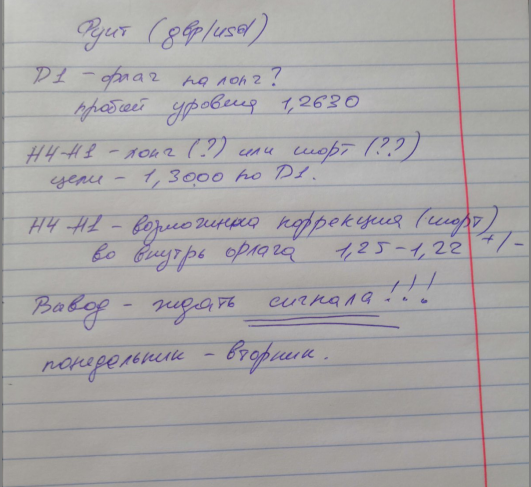 Фунт (gbp/usd)
D1 – флаг на лонг?
пробой уровня 1,2630
H4-H1 – лонг (?) или шорт (??)
цели – 1,3000 по D1.
H4-H1 – возможна коррекция (шорт)
во внутрь флага 1,25-1,22 +/-
Вывод – ждать сигнала!!!
понедельник – вторник.